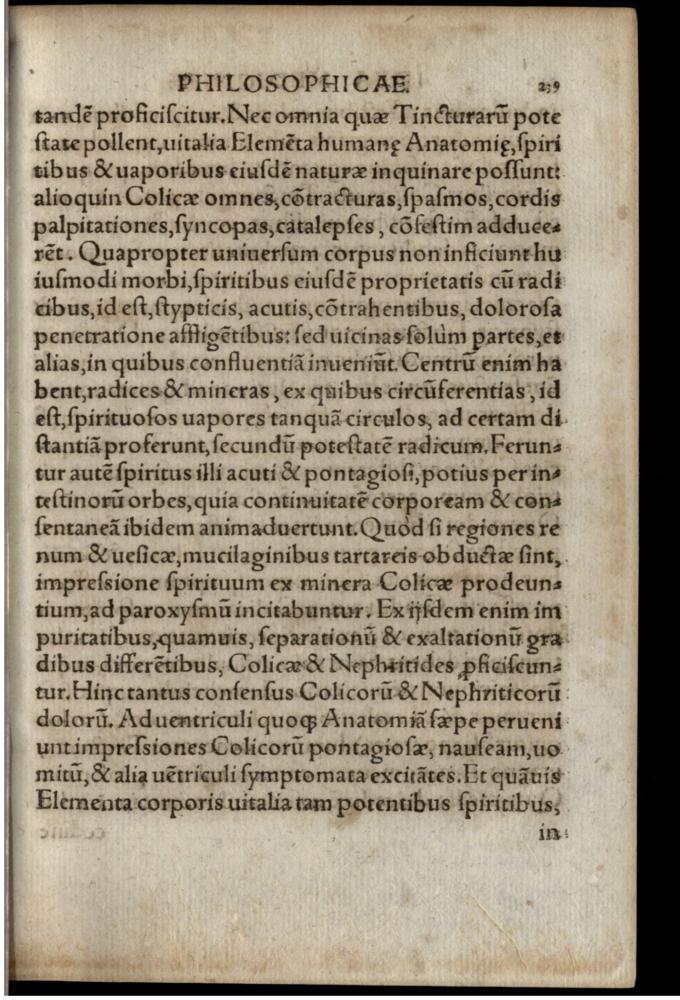 PHILOSOPHICAE. 239
tandē proficiſcitur. Nec omnia quæ Tincturarū pote
ſtate pollent, uitalia Elemēta humanę Anatomię, ſpiri
tibus & uaporibus eiuſdē naturæ inquinare poſſunt:
alioquin Colicæ omnes, cōtracturas, ſpaſmos, cordis
palpitationes, ſyncopas, catalepſes, cōfeſtim adduce⸗
rēt. Quapropter uniuerſum corpus non inficiunt hu
iuſmodi morbi, ſpiritibus eiuſdē proprietatis cū radi
cibus, id eſt, ſtypticis, acutis, cōtrahentibus, doloroſa
penetratione affligētibus: ſed uicinas ſolùm partes, et
alias, in quibus confluentiā inueniūt. Centrū enim ha
bent, radices & mineras, ex quibus circūferentias, id
eſt, ſpirituoſos uapores tanquā circulos, ad certam di
ſtantiā proferunt, ſecundū poteſtatē radicum. Ferun⸗
tur autē ſpiritus illi acuti & pontagioſi, potius per in⸗
teſtinorū orbes, quia continuitatē corpoream & con⸗
ſentaneā ibidem animaduertunt. Quòd ſi regiones re
num & ueſicæ, mucilaginibus tartareis obductæ ſint,
impreſsione ſpirituum ex minera Colicæ prodeun⸗
tium, ad paroxyſmū incitabuntur. Ex ijſdem enim im
puritatibus, quamuis, ſeparationū & exaltationū gra
dibus differētibus, Colicæ & Nephritides ꝓficiſcun⸗
tur. Hinc tantus conſenſus Colicorū & Nephriticorū
dolorū. Ad uentriculi quoqꝫ Anatomiā ſæpe perueni
unt impreſsiones Colicorū pontagioſæ, nauſeam, uo
mitū, & alia uētriculi ſymptomata excitātes. Et quāuis
Elementa corporis uitalia tam potentibus ſpiritibus,
in⸗